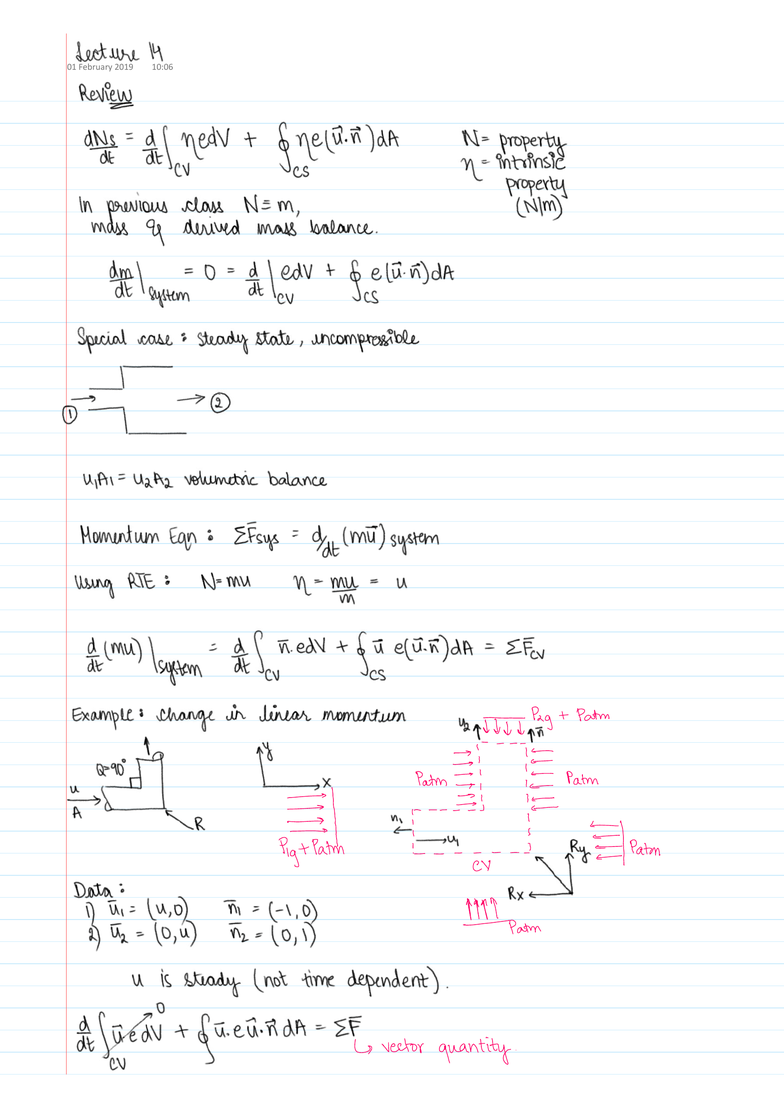 Lecture 14
01 February 2019 10:06
Review
dNs/dt = d/dt ∫CV ηedV + ∮CS ηe(u⃗.n⃗)dA
N= property
η = intrinsic
property
(N/m)
In previous class N≡m,
mass & derived mass balance.
dm/dt |system = 0 = d/dt ∫CV edV + ∮CS e(u⃗.n⃗)dA
Special case : steady state, uncompressible
① → → ②
u₁A₁ = u₂A₂ volumetric balance
Momentum Eqn : ΣF̄sys = d/dt (mū) system
Using RTE : N=mu η = mu/m = u
d/dt (mu) |system = d/dt ∫CV n̄.edV + ∮CS ū e(ū.n̄)dA = ΣF̄CV
Example : change in linear momentum
Q=90°
u
A
R
y
x
P1g + Patm
u₂
P2g + Patm
n̄
Patm
Patm
n₁
u₁
CV
Ry
Patm
Rx
Patm
Data :
1) ū₁ = (u,0) n̄₁ = (-1,0)
2) ū₂ = (0,u) n̄₂ = (0,1)
u is steady (not time dependent).
d/dt ∫CV ū e dV 0 + ∮ ū.e ū.n⃗ dA = ΣF̄
↳ vector quantity